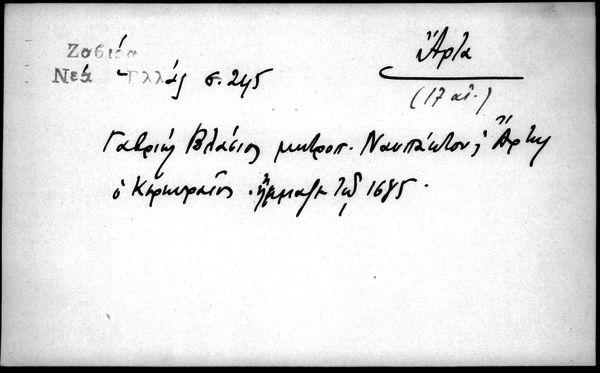 Ζαβίρα
Νέα Ἑλλάς σ. 245
Ἄρτα
(17 αἰ.)
Γαβριὴλ Βλάσιος μητροπ. Ναυπάκτου & Ἄρτης
ὁ Κερκυραῖος. ἤκμαζε τῷ 1685.